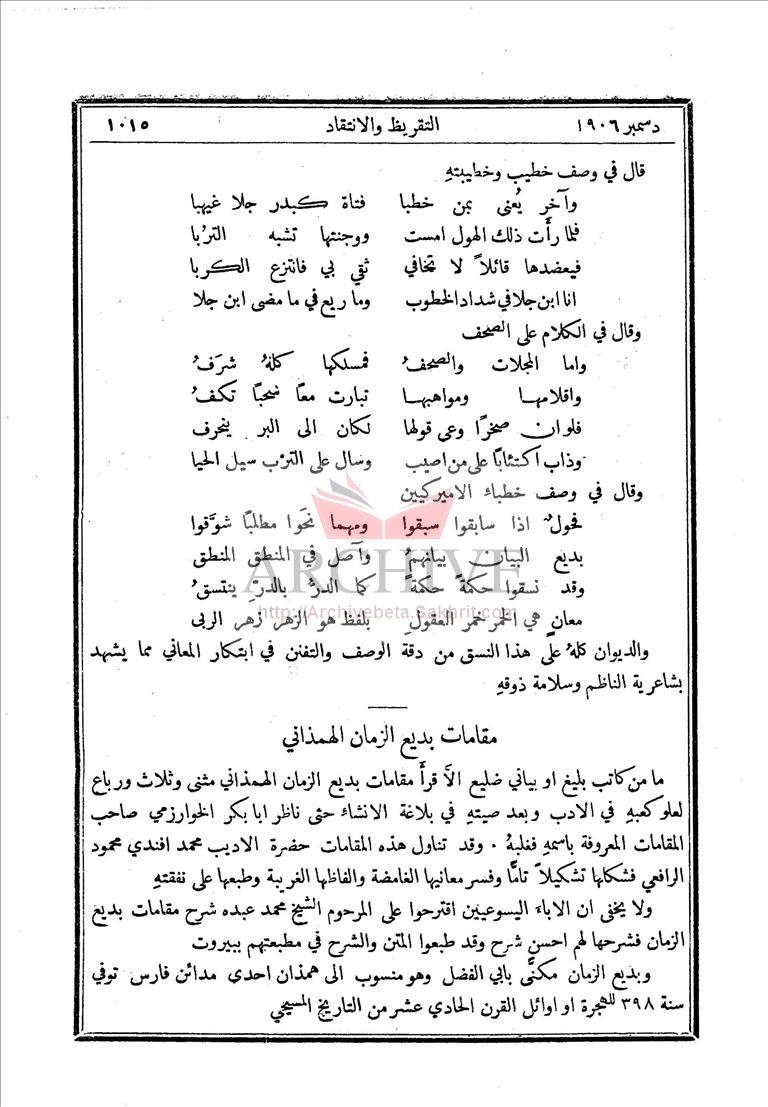 دسمبر ١٩٠٦ التقريظ والانتقاد ١٠١٥
قال في وصف خطيب وخطيبتهِ
وآخر يُعنى بمن خطبا فتاة كبدر جلا غيهبا
فلما رأت ذلك الهول امست ووجنتها تشبه التربا
فيعضدها قائلاً لا تخافي ثقي بي فانتزع الكربا
انا ابن جلا في شداد الخطوب وما ريع في ما مضى ابن جلا
وقال في الكلام على الصحف
واما المجلات والصحفُ فمسلكها كلهُ شرَفُ
واقلامها ومواهبها تبارت معًا سحبًا تكفُ
فلو ان صخرًا وعى قولها لكان الى البر ينحرف
وذاب اكتئابًا على من اصيب وسال على الترْب سيل الحيا
وقال في وصف خطباء الاميركيين
فحولٌ اذا سابقوا سبقوا ومهما نحَوا مطلبًا شوَّقوا
بديع البيان بيانهمُ وآصل في المنطق المنطق
وقد نسقوا حكمةً حكمةً كما الدرُّ بالدرِّ ينتسقُ
معانٍ هي الخمر خمر العقول بلفظ هو الزهر زهر الربى
ARCHIVE
http://Archivebeta.Sakhrit.com
والديوان كلهُ على هذا النسق من دقة الوصف والتفنن في ابتكار المعاني مما يشهد
بشاعرية الناظم وسلامة ذوقهِ
مقامات بديع الزمان الهمذاني
ما من كاتب بليغ او بياني ضليع الاَّ قرأَ مقامات بديع الزمان الهمذاني مثنى وثلاث ورباع
لعلو كعبهِ في الادب وبعد صيتهِ في بلاغة الانشاء حتى ناظر ابا بكر الخوارزمي صاحب
المقامات المعروفة باسمهِ فغلبهُ . وقد تناول هذه المقامات حضرة الاديب محمد افندي محمود
الرافعي فشكلها تشكيلاً تامًّا وفسر معانيها الغامضة والفاظها الغريبة وطبعها على نفقتهِ
ولا يخفى ان الاباء اليسوعيين اقترحوا على المرحوم الشيخ محمد عبده شرح مقامات بديع
الزمان فشرحها لهم احسن شرح وقد طبعوا المتن والشرح في مطبعتهم ببيروت
وبديع الزمان مكنَّى بابي الفضل وهو منسوب الى همذان احدى مدائن فارس توفي
سنة ٣٩٨ للهجرة او اوائل القرن الحادي عشر من التاريخ المسيحي